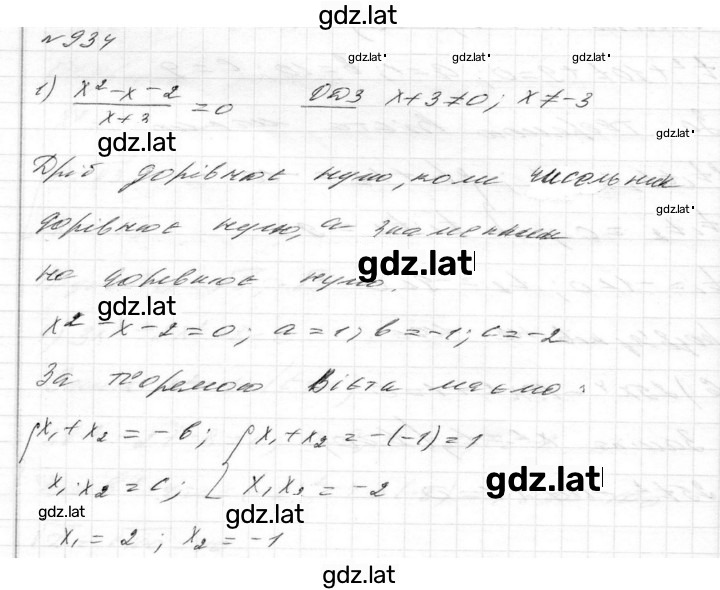 gdz.lat
№934
gdz.lat gdz.lat gdz.lat
1) (x² - x - 2)/(x + 3) = 0 ОДЗ x + 3 ≠ 0; x ≠ -3
gdz.lat gdz.lat
Дріб дорівнює нулю, коли чисельник
gdz.lat
дорівнює нулю, а знаменник
gdz.lat
не дорівнює нулю.
gdz.lat
x² - x - 2 = 0; a = 1; b = -1; c = -2
За теоремою Вієта маємо:
{x₁ + x₂ = -b; {x₁ + x₂ = -(-1) = 1
x₁ · x₂ = c; x₁ x₂ = -2
gdz.lat
gdz.lat gdz.lat
x₁ = 2; x₂ = -1
gdz.lat